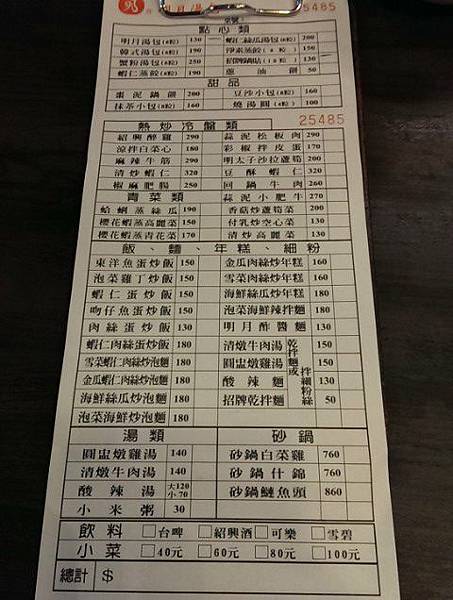 明月湯 25485
桌號
點心類
明月湯包(8粒) 130 蝦仁絲瓜湯包(8粒) 200
韓式湯包(8粒) 190 淨素蒸餃(8粒) 150
蟹粉湯包(8粒) 250 招牌鍋貼(10粒) 130
蝦仁蒸餃(8粒) 190 蔥油餅 50
甜品
棗泥鍋餅 200 豆沙小包(8粒) 160
抹茶小包(8粒) 160 燒湯圓(8粒) 100
熱炒冷盤類 25485
紹興醉雞 290 蒜泥松板肉 290
涼拌白菜心 180 彩椒拌皮蛋 170
麻辣牛筋 290 明太子沙拉蘆筍 200
清炒蝦仁 320 豆酥蝦仁 320
椒麻肥腸 250 回鍋牛肉 260
青菜類 蒜泥小肥牛 270
蛤蜊蒸絲瓜 190 香菇炒蘆筍菜 200
櫻花蝦蒸高麗菜 150 付乳炒空心菜 130
櫻花蝦蒸青花菜 170 清炒高麗菜 130
飯、麵、年糕、細粉
東洋魚蛋炒飯 150 金瓜肉絲炒年糕 160
泡菜雞丁炒飯 150 雪菜肉絲炒年糕 160
蝦仁蛋炒飯 180 海鮮絲瓜炒年糕 180
吻仔魚蛋炒飯 150 泡菜海鮮辣拌麵 180
肉絲蛋炒飯 130 明月酢醬麵 130
蝦仁肉絲蛋炒飯 180 清燉牛肉湯 乾拌麵或拌細粉絲 150
雪菜蝦仁肉絲炒泡麵 180 圓盅燉雞湯 150
金瓜蝦仁肉絲炒泡麵 180 酸辣麵 130
海鮮絲瓜炒泡麵 180 招牌乾拌麵 50
泡菜海鮮炒泡麵 180
湯類 砂鍋
圓盅燉雞湯 140 砂鍋白菜雞 760
清燉牛肉湯 140 砂鍋什錦 760
酸辣湯 大120 小70 砂鍋鰱魚頭 860
小米粥 30
飲料 □台啤 □紹興酒 □可樂 □雪碧
小菜 □40元 □60元 □80元 □100元
總計 $